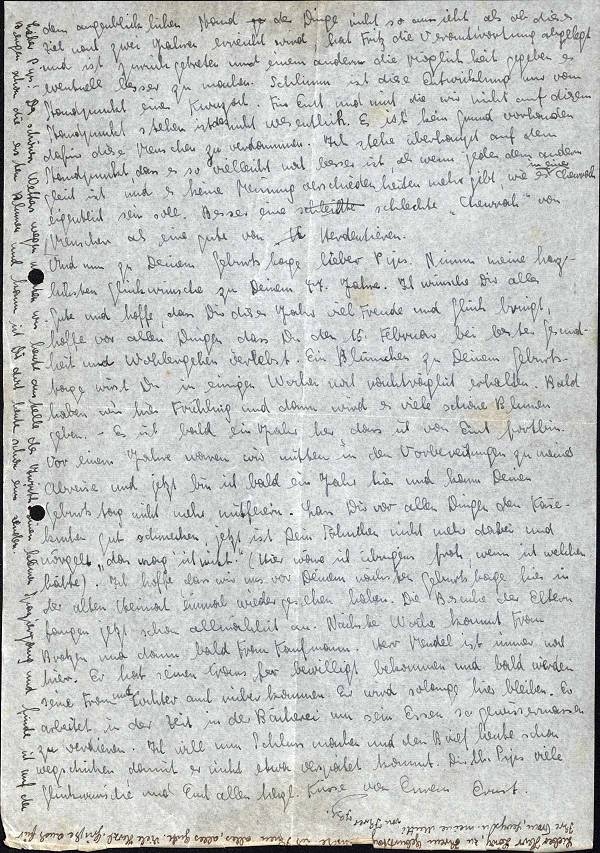 dem augenblicklichen Stand der Dinge nicht so aussieht als ob dieses
Ziel nach zwei Jahren erreicht wird hat Fritz die Verantwortung abgelegt
und ist zurückgetreten und einem anderen die Möglichkeit gegeben es
eventuell besser zu machen. Schlimm ist diese Entwicklung nur vom
Standpunkt einer Für Euch und mich die wir nicht auf diesem
Standpunkt stehen ist das nicht wesentlich. Es ist kein Grund vorhanden
dafür diese Menschen zu verdammen. Ich stehe überhaupt auf dem
Standpunkt dass es so vielleicht noch besser ist, als wenn jeder dem andern
gleich ist und es keine Meinungsverschiedenheiten mehr gibt, wie es in einer Chewrah
eigentlich sein soll. Besser eine schlechte "Chewrah" von
Menschen als eine gute von Herdentieren.
Und nun zu Deinem Geburtstage lieber Pips. Nimm meine herz-
lichsten Glückwünsche zu Deinem 47. Jahre. Ich wünsche Dir alles
Gute und hoffe, dass Dir dieses Jahr viel Freude und Glück bringt,
hoffe vor allen Dingen dass Du den 15. Februar bei bester Gesund-
heit und Wohlergehen verlebst. Ein Blümchen zu Deinem Geburts-
tage wirst Du in einigen Wochen noch nachträglich erhalten. Bald
haben wir hier Frühling und dann wird es viele schöne Blumen
geben. - Es ist bald ein Jahr her, dass ich von Euch fort bin.
Vor einem Jahre waren wir mitten in den Vorbereitungen zu meiner
Abreise und jetzt bin ich bald ein Jahr hier und kann Deinen
Geburtstag nicht mehr mitfeiern. Lass Dir vor allen Dingen den Käse-
kuchen gut schmecken jetzt ist Dein Söhnchen nicht mehr dabei und
nörgelt "das mag ich nicht." (Hier wäre ich übrigens froh, wenn ich welchen
hätte). Ich hoffe dass wir uns vor Deinem nächsten Geburtstage hier in
der alten Heimat einmal wiedergesehen haben. Die Besuche der Eltern
fangen jetzt schon allmählich an. Nächste Woche kommt Frau
und dann bald Frau Kaufmann. Herr Mendel ist immer noch
hier. Er hat seinen bewilligt bekommen und bald werden
seine Frau und Tochter auch rüber kommen. Er wird solange hier bleiben. Er
arbeitet in der Zeit in der Bäckerei um sein Essen so gewissermassen
zu verdienen. Ich will nun Schluss machen und den Brief heute schon
wegschicken damit er nicht etwa verspätet kommt. Dir lb. Pips viele
Glückwünsche und Euch allen herzl. Küsse von Eurem Ernst.
Lieber Pips! Des schönen Wetters wegen wir heute anstelle der einen kleinen Spaziergang und finde ich auf den
Bergen schon die ersten Blumen und kann ich Dir doch heute schon eine senden.
Lieber Herr zu Ihrem Geburtstag wünsche ich Ihnen alles, alles Gute. Viele herzl. Grüße auch für
Ihre Frau
von Ihrer